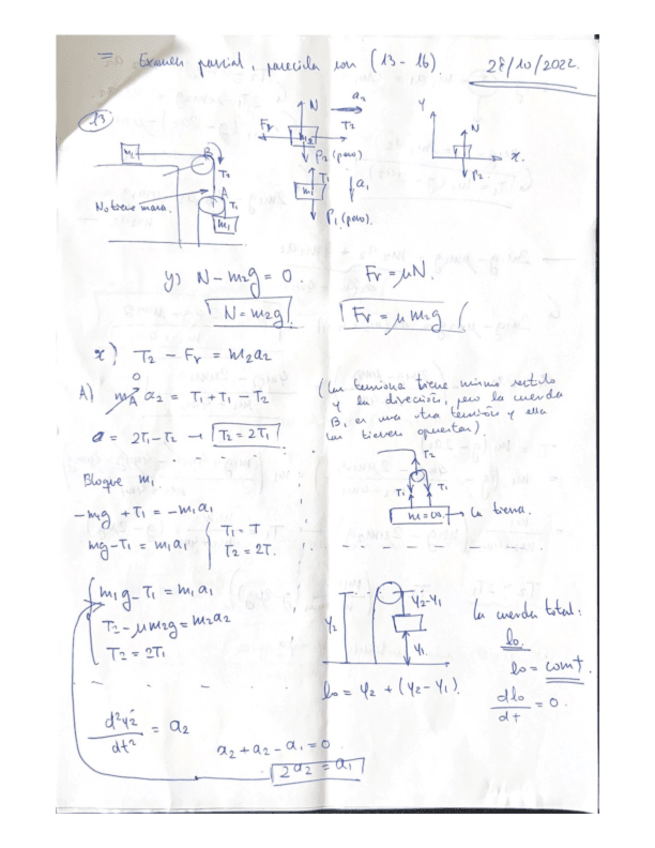 = Examen parcial, parecida con (13-16) 28/10/2022.
13
m2
B
T2
A
No tiene masa.
T1
m1
N
a2
Fr
m2
T2
P2 (peso)
T1
m1
a1
P1 (peso).
Y
N
x.
P2
y) N - m2g = 0.
Fr = μN.
N = m2g
Fr = μ m2g
x) T2 - Fr = m2a2
0
A) mA a2 = T1 + T1 - T2
0 = 2T1 - T2 → T2 = 2T1
(Las tensiona tiene mismo sentido
y la dirección, pero la cuerda
B, es una otra tensión y ella
las tienen opuestas).
Bloque m1
-m1g + T1 = -m1a1
m1g - T1 = m1a1
T1 = T
T2 = 2T.
T2
T1
T1
m = ∞
La tierra.
m1g - T1 = m1a1
T2 - μm2g = m2a2
T2 = 2T1
y2
y2-y1
y1
La cuerda total:
lo.
lo = const.
lo = y2 + (y2 - y1).
dlo/dt = 0.
d²y2/dt² = a2
a2 + a2 - a1 = 0
2a2 = a1